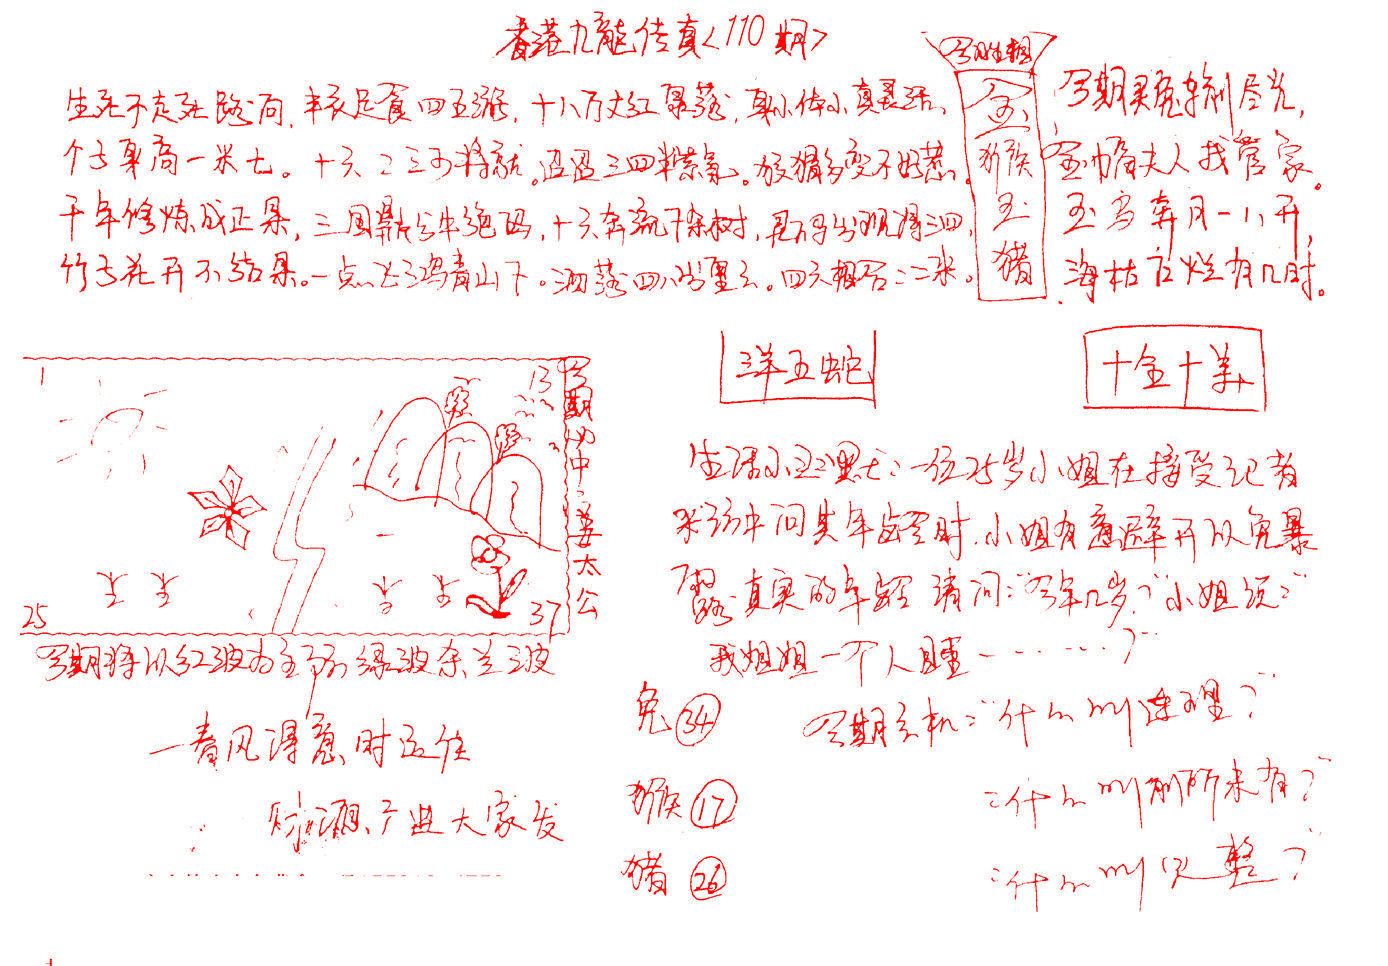 香港九龍传真<110期>
今期生相
金
猴
玉
猪
生死不走死路向,丰衣足食四五涨,十八万丈红暴落,身小体小真灵活、
个子身高一米七。十六二三可将就。迢迢三四半紫氣。狡猾多变不好惹。
千年修炼成正果,三国鼎足去牛绝码,十六奔流千条树,
竹子花开不结果。一点飞鸿青山下。洒落四八当里云。四六相合二二米。
今期灵兔转到尽光,
金屋夫人找管家。
玉兔奔月一八开,
海枯石烂有几时。
羊五蛇
十金十羊
1
13
25
37
今期必中:姜太公
今期特以红波为主防绿波杀兰波
一春风得意时运佳
财源广进大家发
生活小丑黑七:一位25岁小姐在接受记者
采访中问其年龄时,小姐有意避开以免暴
露真实的年龄 请问:"今年几岁?"小姐说:"
我姐姐一个人睡……"
兔 34
猴 17
猪 26
今期玄机:"什么叫连理?"
"什么叫前所未有?"
"什么叫完整?"